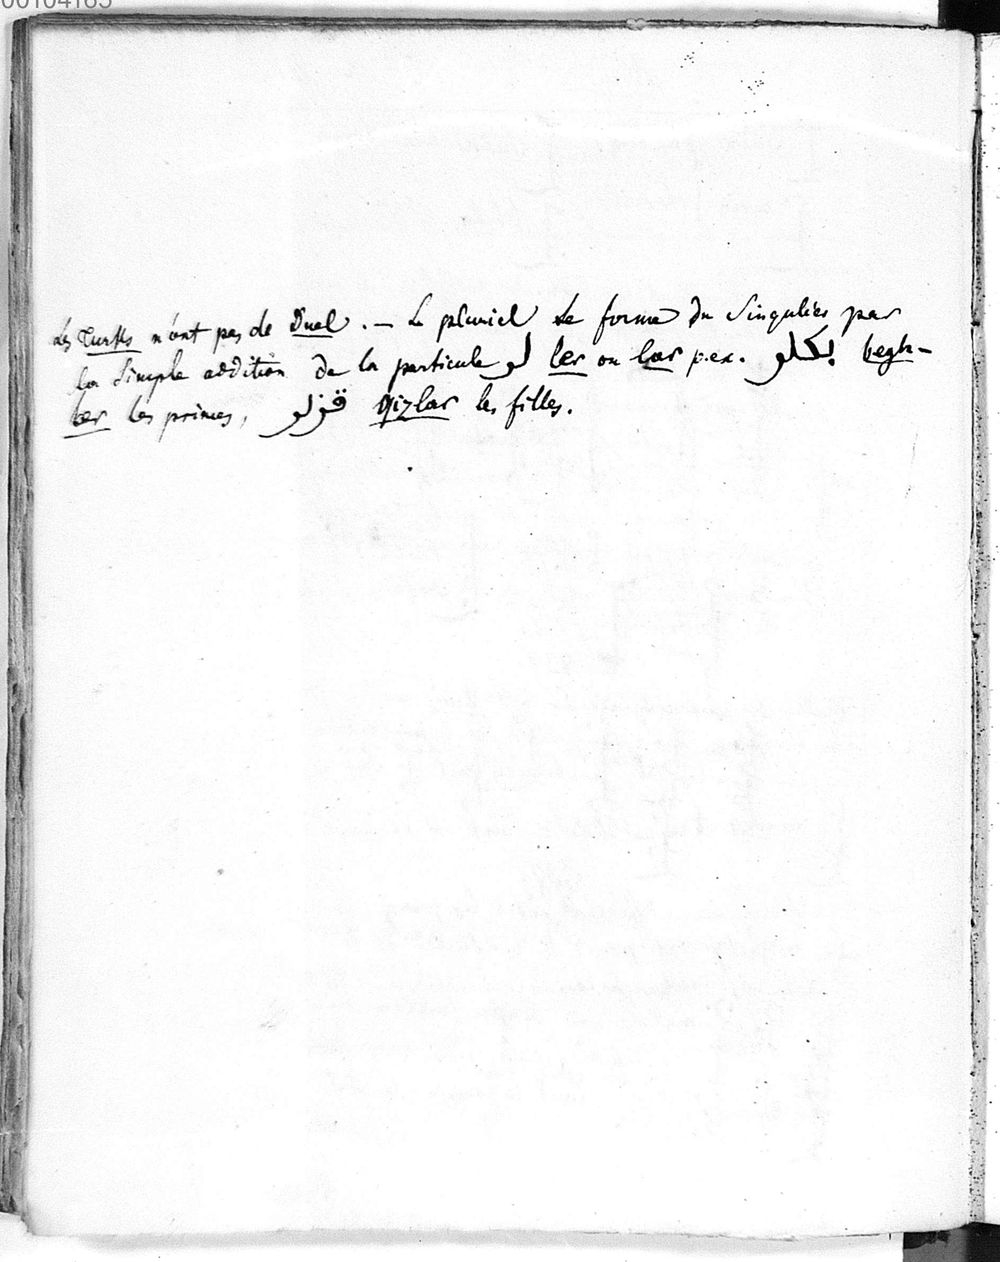 00104165
Les Turks n'ont pas de Duel. — Le pluriel se forme du Singulier par
la Simple addition de la particule لر ler ou lar p.ex. بكلر begh-
ler les princes, قزلر Qizlar les filles.